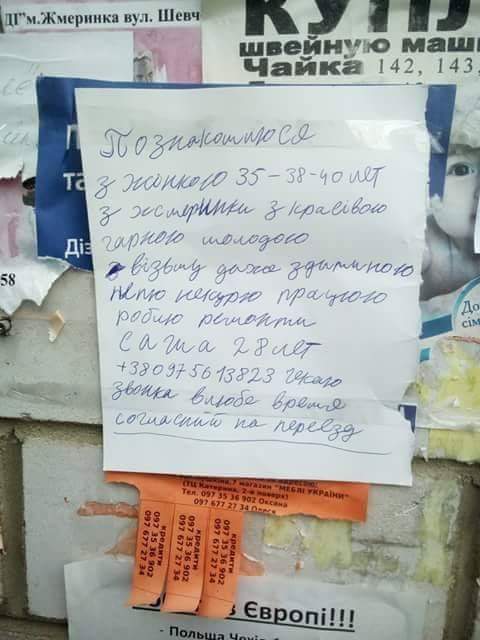 ДІ"м.Жмеринка вул. Шевч
КУПЛ
швейную маши
Чайка 142, 143,
та
Діз
58
До
сім
Познакомлюся
з жонкою 35-38-40 лет
з жмеринки з красівою
гарною молодою
візьму даже здитиною
непю некурю працюю
роблю ремонти
Саша 28 лет
+380975613823 чекаю
звонка влюбе время
согласний на переезд
7 магазин "МЕБЛІ УКРАЇНИ"
(ТЦ Катерина, 2-й поверх)
Тел. 097 35 36 902 Оксана
097 677 27 34 Олеся
кредити
097 35 36 902
097 677 27 34
кредити
097 35 36 902
097 677 27 34
кредити
097 35 36 902
097 677 27 34
в Європі!!!
- Польща